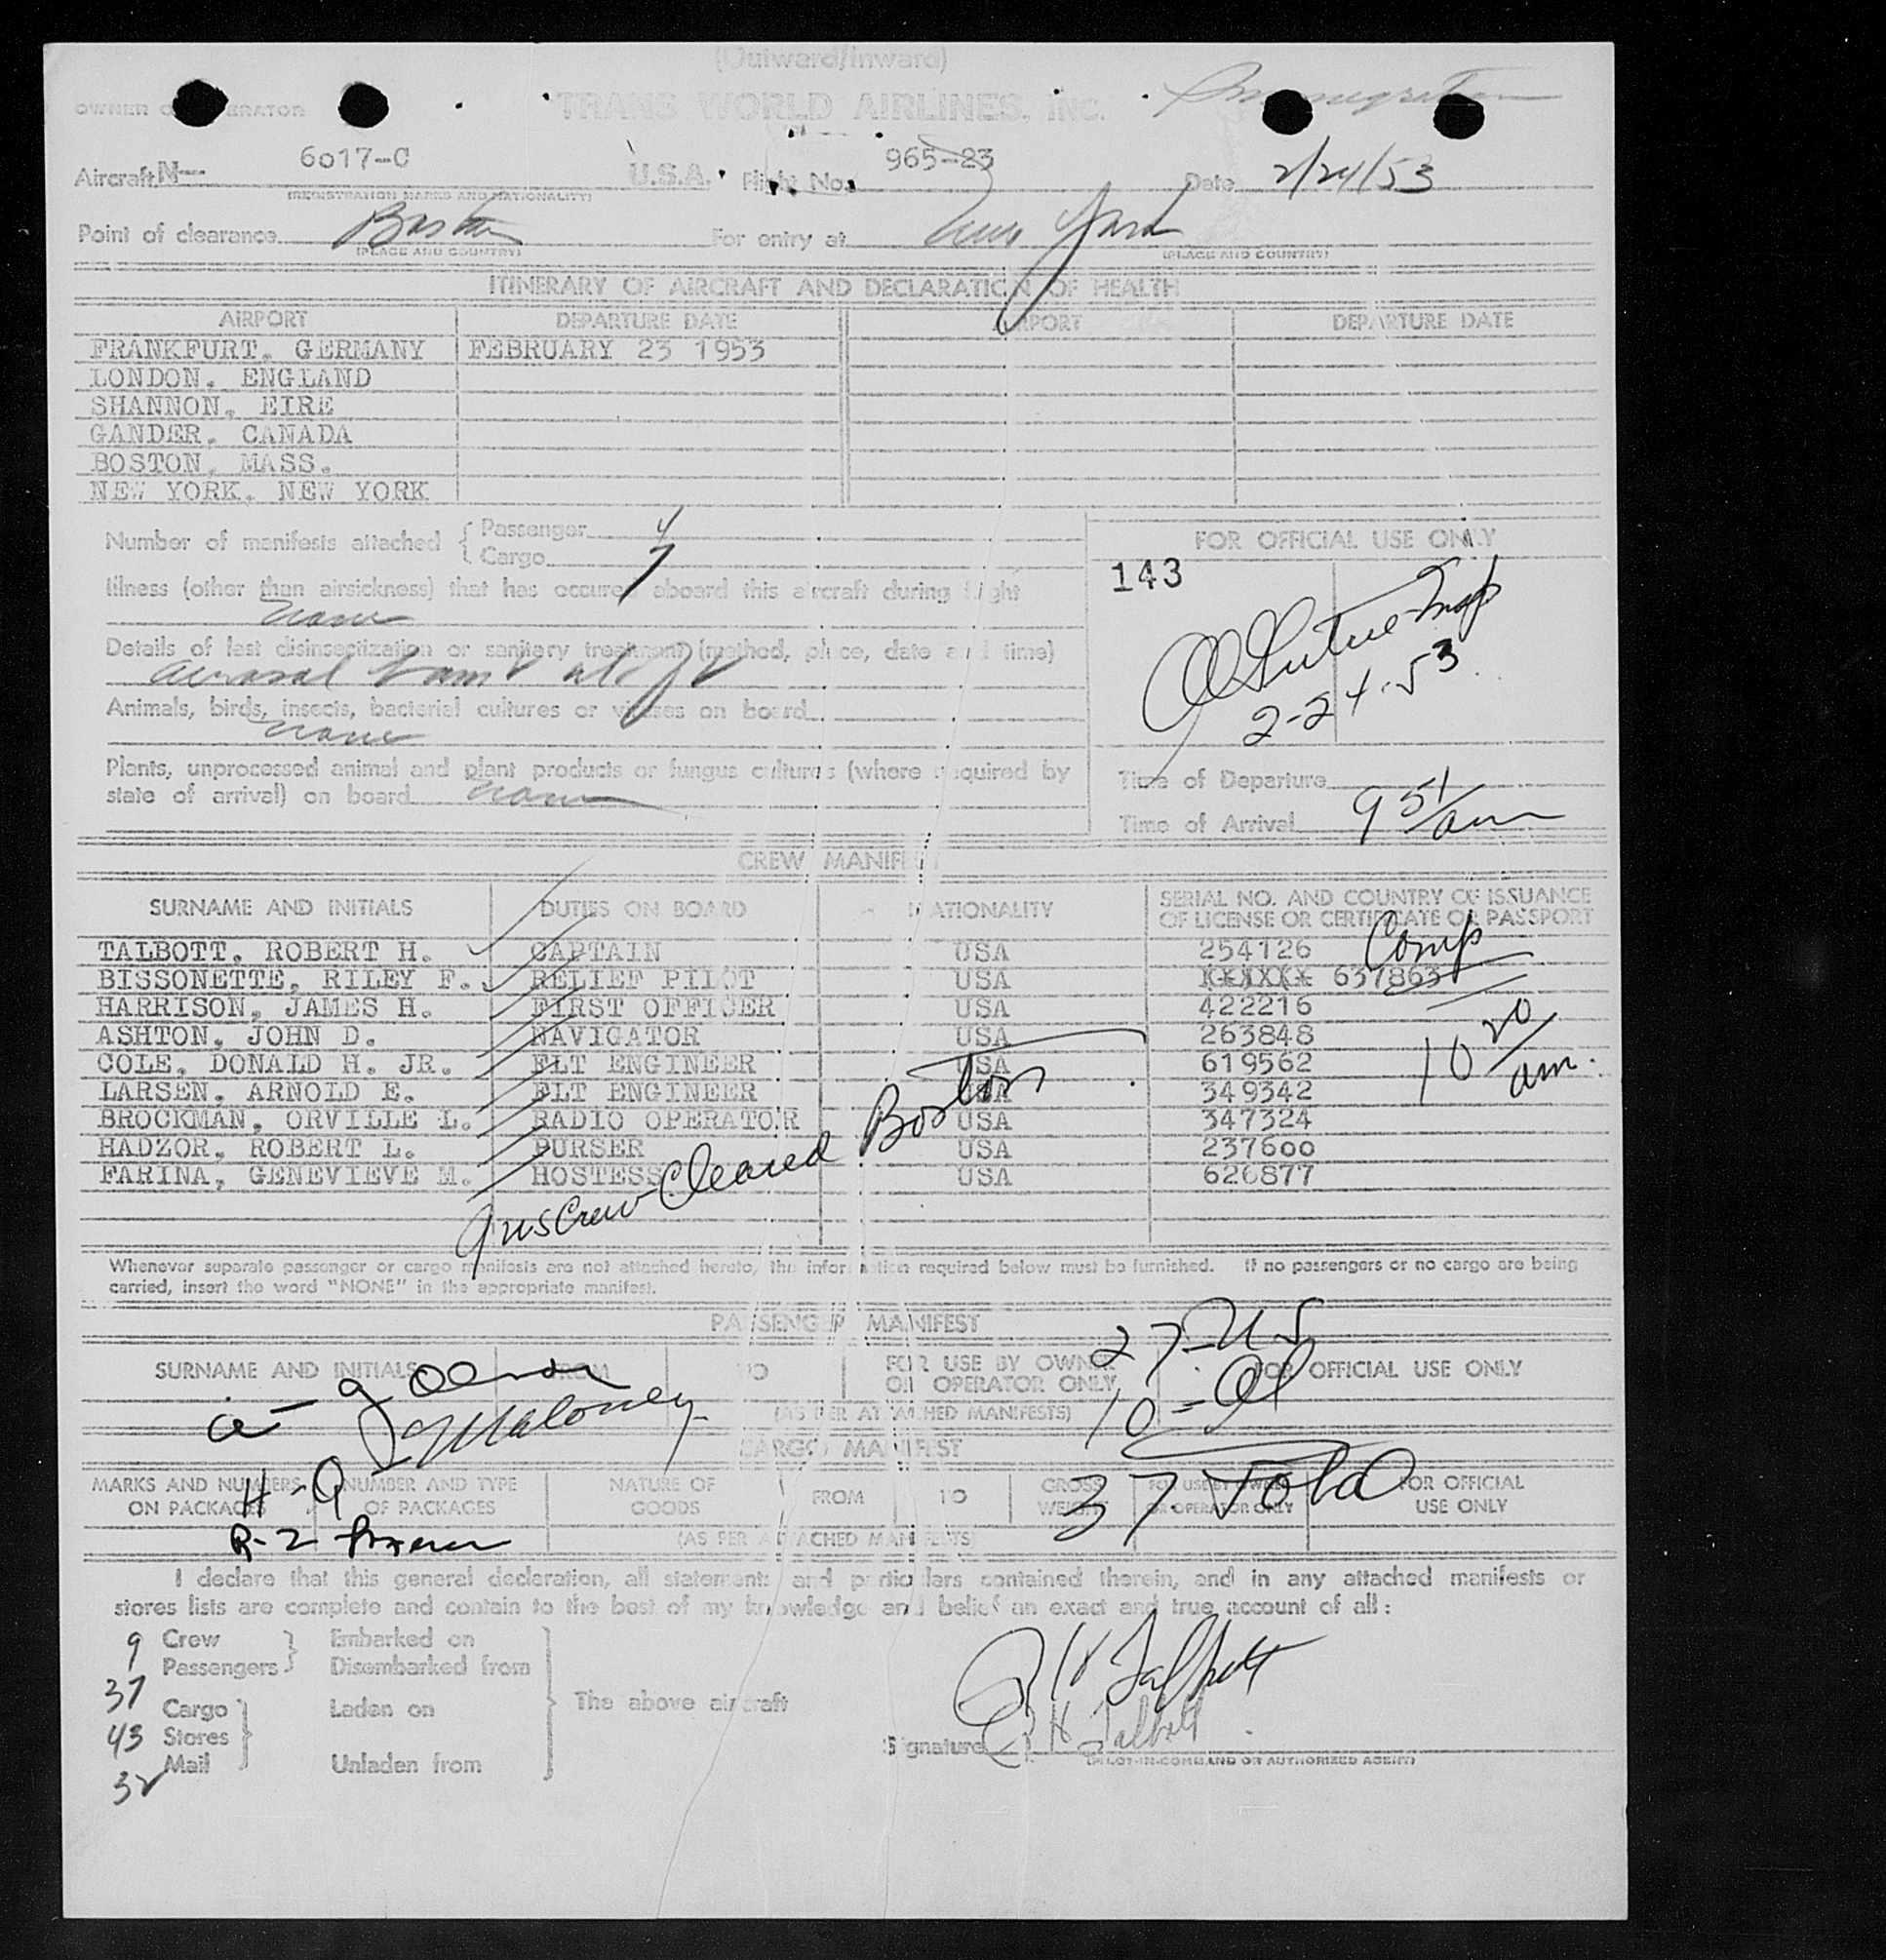 (Outward/Inward)
OWNER O ERATOR TRANS WORLD AIRLINES, INC. Immigration
Aircraft N-- 6017-C U.S.A. Flight No. 965-23 Date 2/24/53
(REGISTRATION MARKS AND NATIONALITY)
Point of clearance Boston For entry at New York
(PLACE AND COUNTRY) (PLACE AND COUNTRY)
ITINERARY OF AIRCRAFT AND DECLARATION OF HEALTH
AIRPORT DEPARTURE DATE AIRPORT DEPARTURE DATE
FRANKFURT, GERMANY FEBRUARY 23 1953
LONDON, ENGLAND
SHANNON, EIRE
GANDER, CANADA
BOSTON, MASS.
NEW YORK, NEW YORK
Number of manifests attached { Passenger
Cargo
FOR OFFICIAL USE ONLY
143
Illness (other than airsickness) that has occured aboard this aircraft during flight
none
Details of last disinsectization or sanitary treatment (method, place, date and time)
aerosol bomb
2-24-53
Animals, birds, insects, bacterial cultures or viruses on board
none
Plants, unprocessed animal and plant products or fungus cultures (where required by
state of arrival) on board none
Time of Departure
Time of Arrival 9 51/am
CREW MANIFEST
SURNAME AND INITIALS DUTIES ON BOARD NATIONALITY SERIAL NO. AND COUNTRY OF ISSUANCE
OF LICENSE OR CERTIFICATE OR PASSPORT
TALBOTT, ROBERT H. CAPTAIN USA 254126 Comp
BISSONETTE, RILEY F. RELIEF PILOT USA XXXXXX 637863
HARRISON, JAMES H. FIRST OFFICER USA 422216
ASHTON, JOHN D. NAVIGATOR USA 263848
COLE, DONALD H. JR. FLT ENGINEER USA 619562 10 20/am.
LARSEN, ARNOLD E. FLT ENGINEER USA 349342
BROCKMAN, ORVILLE L. RADIO OPERATOR USA 347324
HADZOR, ROBERT L. PURSER USA 237600
FARINA, GENEVIEVE M. HOSTESS USA 626877
9 US Crew-Cleared Boston
Whenever separate passenger or cargo manifests are not attached hereto, the information required below must be furnished. If no passengers or no cargo are being
carried, insert the word "NONE" in the appropriate manifest.
PASSENGER MANIFEST
27-US
SURNAME AND INITIALS FROM TO FOR USE BY OWNER
OR OPERATOR ONLY FOR OFFICIAL USE ONLY
10-Al
Maloney
(AS PER ATTACHED MANIFESTS)
CARGO MANIFEST
37 Total
MARKS AND NUMBERS
ON PACKAGES NUMBER AND TYPE
OF PACKAGES NATURE OF
GOODS FROM TO GROSS
WEIGHT FOR USE BY OWNER
OR OPERATOR ONLY FOR OFFICIAL
USE ONLY
(AS PER ATTACHED MANIFESTS)
I declare that this general declaration, all statements and particulars contained therein, and in any attached manifests or
stores lists are complete and contain to the best of my knowledge and belief an exact and true account of all:
9 Crew Embarked on
Passengers Disembarked from
37 Cargo Laden on The above aircraft
43 Stores
Mail Unladen from
32
R H Talbott
Signature R H Talbott
(PILOT-IN-COMMAND OR AUTHORIZED AGENT)